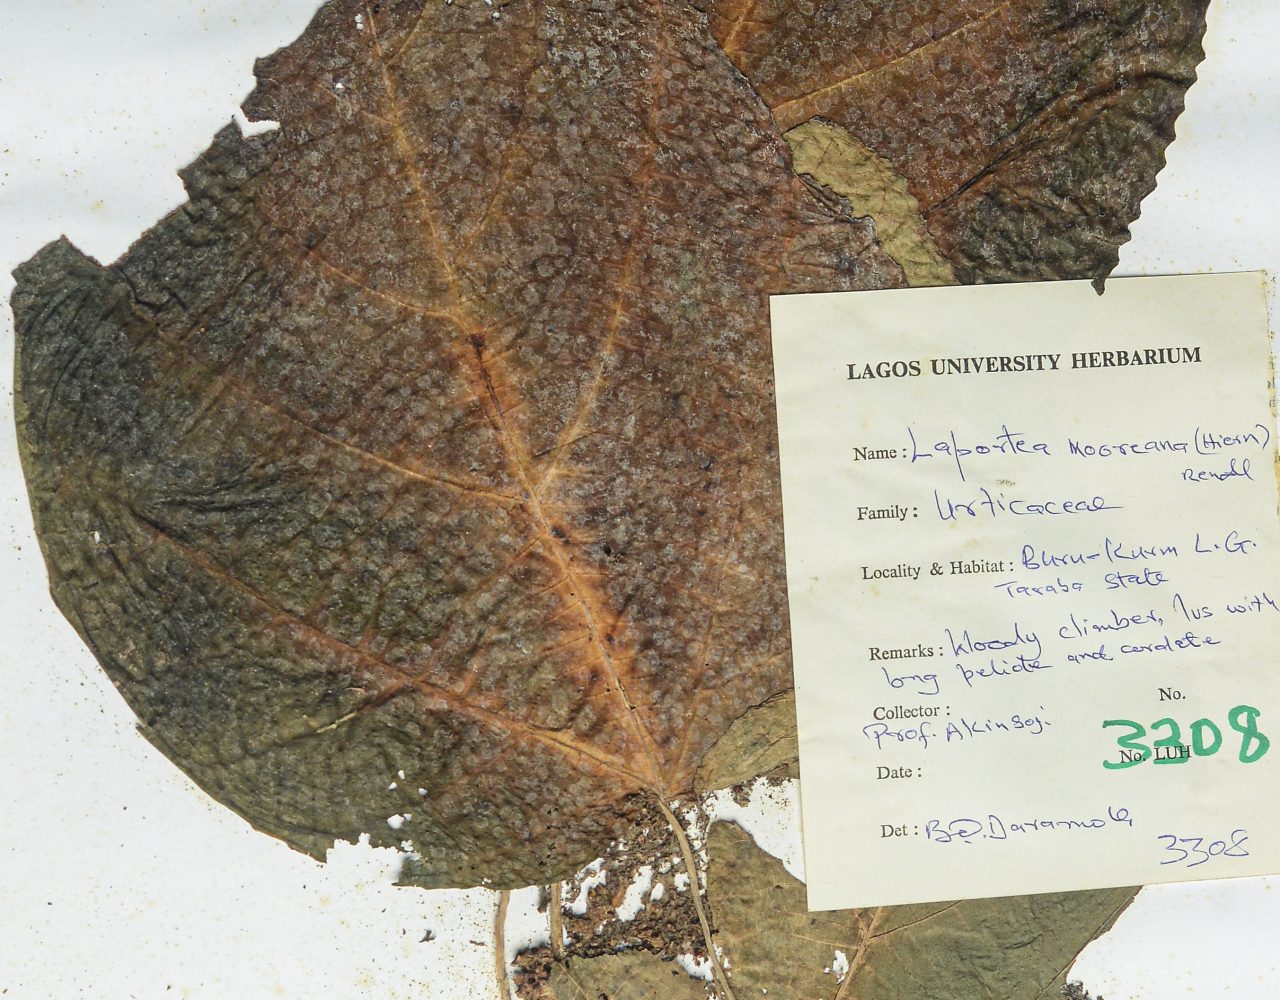 LAGOS UNIVERSITY HERBARIUM
Name : Laportea mooreana (Hiern)
Rendl
Family : Urticaceae
Locality & Habitat : Buru-Kurm L.G.
Taraba State
Remarks : Woody climber, lvs with
long peliote and cordate
Collector :
Prof. Akinsoji
No.
3208
No. LUH
Date :
Det : B.O. Daramola
3308